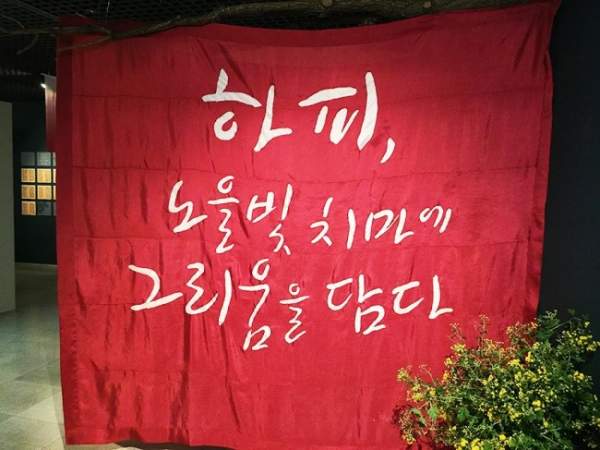 하피,
노을빛 치마에
그리움을 담다